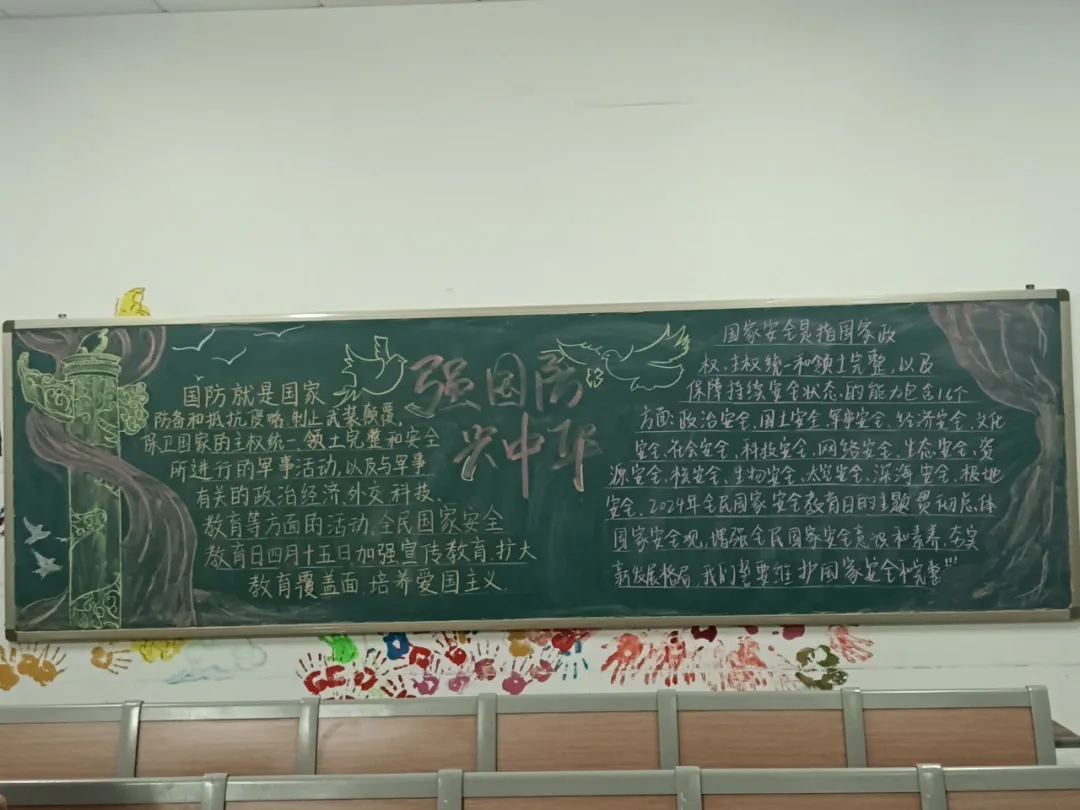 国防就是国家
防备和抵抗侵略,制止武装颠覆,
保卫国家的主权统一、领土完整和安全
所进行的军事活动,以及与军事
有关的政治经济,外交,科技、
教育等方面的活动,全民国家安全
教育日四月十五日加强宣传教育,扩大
教育覆盖面,培养爱国主义.
强国防
兴中华
国家安全是指国家政
权、主权统一和领土完整,以及
保障持续安全状态的能力包含16个
方面:政治安全、国土安全、军事安全、经济安全、文化
安全、社会安全、科技安全、网络安全、生态安全、资
源安全、核安全、生物安全、太空安全、深海安全、极地
安全、2024年全民国家安全教育日的主题贯彻总体
国家安全观,增强全民国家安全意识和素养,夯实
新发展格局,我们誓要维护国家安全和完整!!!